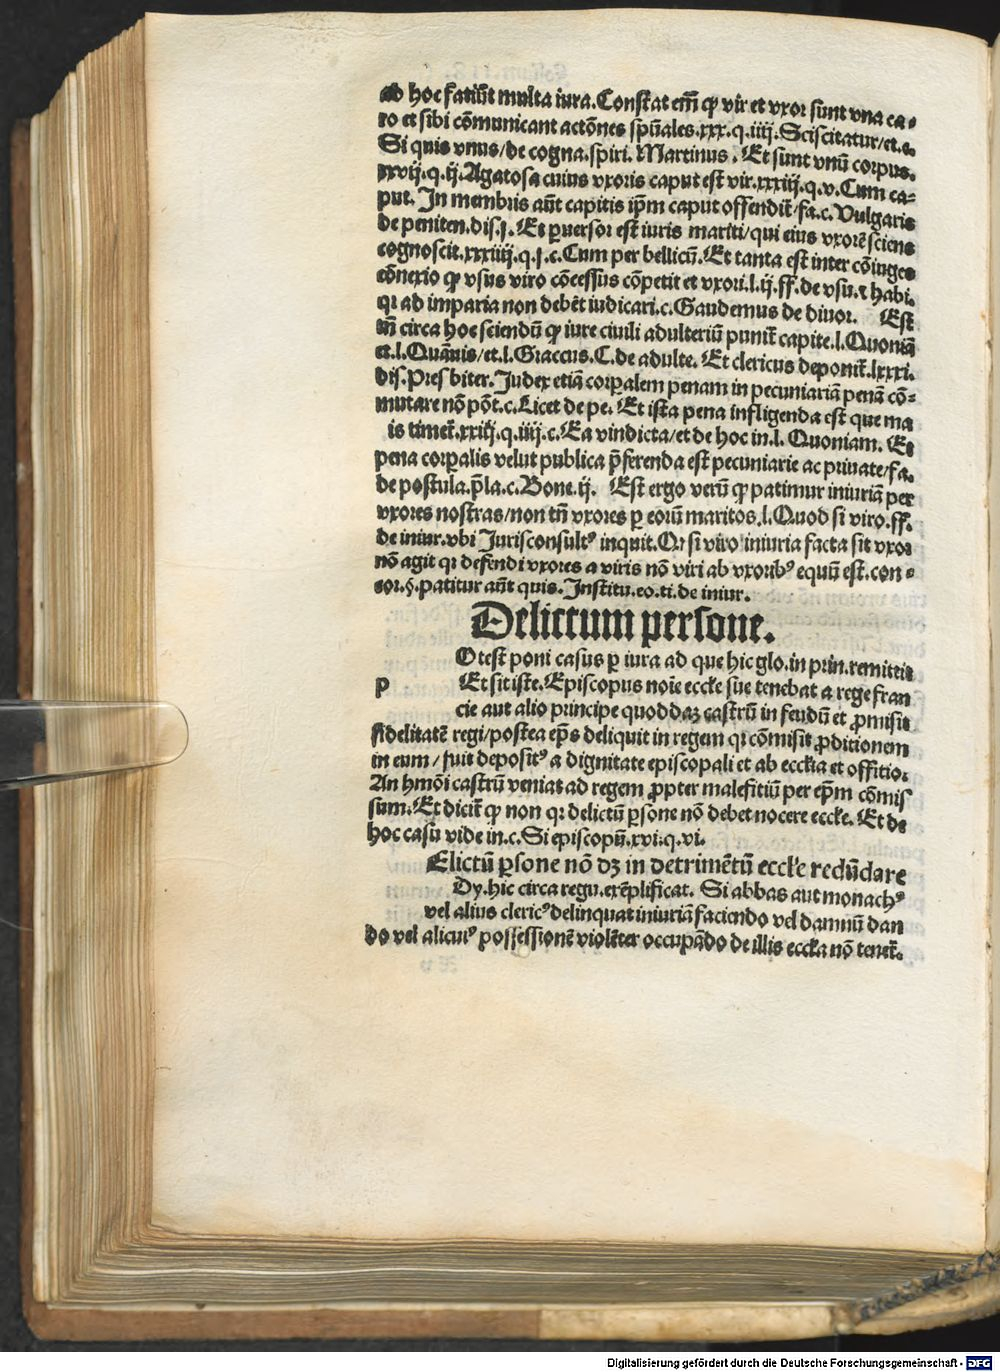 ab hoc faciũt multa iura. Constat em̃ ꝙ vir et vxor sunt vna ca-
ro et sibi cõmunicant actõnes spũales. xxx. q. iiij. Sciscitatur/et. c.
Si quis vnus/de cogna. spiri. Martinus. Et sunt vnũ corpus.
xxvij. q. ij. Agatosa cuius vxoris caput est vir. xxxiij. q. v. Cum ca-
put. In membris aũt capitis ip̃m caput offendit̃/fa. c. Vulgaris
de peniten. dis. j. Et ꝑuersor est iuris mariti/qui eius vxorẽ sciens
cognoscit. xxxiiij. q. j. c. Cum per bellicũ. Et tanta est inter cõiuges
cõnexio ꝙ vsus viro cõcessus cõpetit et vxori. l. ij. ff. de vsu. ⁊ habi.
qꝛ ad imparia non debẽt iudicari. c. Gaudemus de diuor. Est
tñ circa hoc sciendũ ꝙ iure ciuili adulteriũ punit̃ capite. l. Quoniã
et. l. Quãuis/et. l. Graccus. C. de adulte. Et clericus deponit̃. lxxxi.
dis. Presbiter. Judex etiã corpalem penam in pecuniariã penã cõ-
mutare nõ põt. c. Licet de pe. Et ista pena infligenda est que ma
is timet̃. xxiij. q. iiij. c. Ea vindicta/et de hoc in. l. Quoniam. Et
pena corꝑalis velut publica p̃ferenda est pecuniarie ac priuate/fa.
de postula. p̃la. c. Bone. ij. Est ergo verũ ꝙ patimur iniuriã per
vxores nostras/non tñ vxores ꝑ eorũ maritos. l. Quod si viro. ff.
de iniur. vbi Jurisconsultꝰ inquit. Qꝛ si viro iniuria facta sit vxor
nõ agit qꝛ defendi vxores a viris nõ viri ab vxoribꝰ equũ est. con-
cor. §. patitur aũt quis. Institu. eo. ti. de iniur.
Delictum persone.
Otest poni casus ꝑ iura ad que hic glo. in prin. remittit
p Et sit iste. Episcopus noĩe eccłe sue tenebat a rege fran
cie aut alio principe quoddaꝫ castrũ in feudũ et ꝓmisit
fidelitatẽ regi/postea ep̃s deliquit in regem qꝛ cõmisit ꝓditionem
in eum/fuit depositꝰ a dignitate episcopali et ab eccłia et offitio.
An hmõi castrũ veniat ad regem ꝓpter malefitiũ per ep̃m cõmis
sum. Et dicit̃ ꝙ non qꝛ delictũ ꝑsone nõ debet nocere eccłe. Et de
hoc casu vide in. c. Si episcopũ. xvi. q. vi.
Elictũ ꝑsone nõ dꝫ in detrimẽtũ eccłe redũdare
Dy. hic circa regu. exẽplificat. Si abbas aut monachꝰ
vel alius clericꝰ delinquat iniuriã faciendo vel damnũ dan
do vel alicuiꝰ possessionẽ violẽter occupãdo de illis eccłia nõ tenet̃.
Digitalisierung gefördert durch die Deutsche Forschungsgemeinschaft - DFG